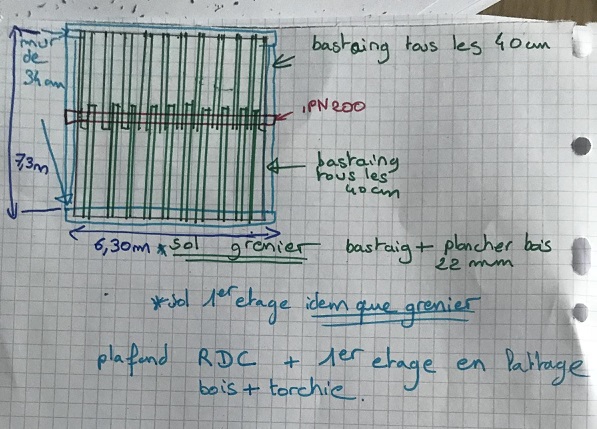 mur
de
34 cm
bastaing tous les 40 cm
IPN200
7,3m
bastaing
tous les
40cm
6,30m
*sol grenier bastaig + plancher bois
22 mm
*sol 1er etage idem que grenier
plafond RDC + 1er etage en lattage
bois + torchie.